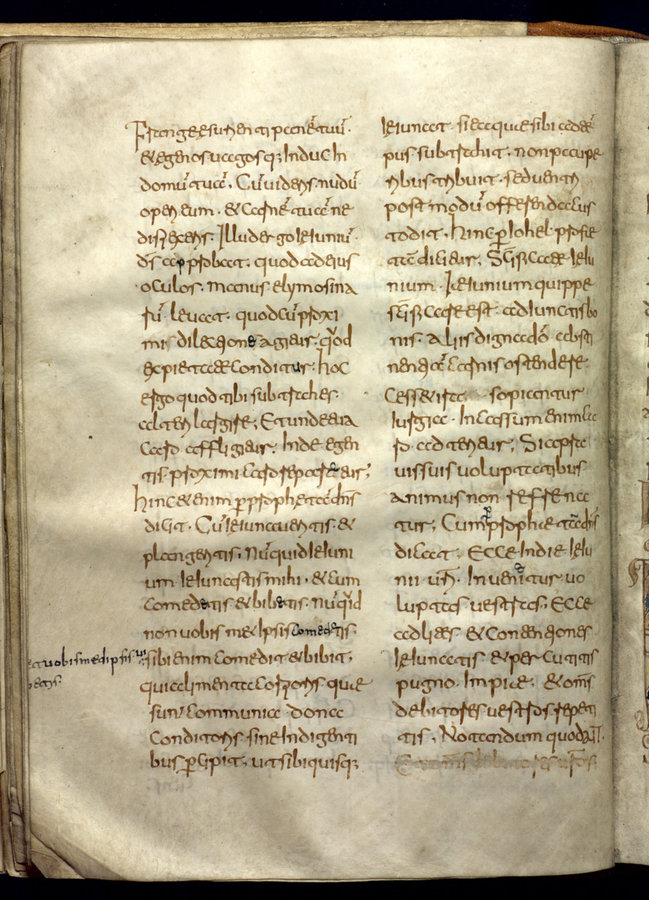 Frange esurienti panē tuū·
& egenos uagosq; Induc In
domū tuā· Cū uideris nudū
operi eum· & carnē tuā ne
dispexeris· Illud ergo Ieiuniū
dš approbat· quod ad eius
oculos· manus elymosina
rū· leuat· quod cū proxi
mi dilectione agitur· qūod
ex pietate conditur· hoc
ergo quod tibi subtrahes·
alteri largire; Et unde tua
caro affligitur· Inde egen
tis· proximi caro reparetur;
hinc etenim p prophetā dns
dicit· Cū Ieiunaueritis· &
plangeritis· Nūquid Ieiuni
um Ieiunastis mihi· & cum
comedetis & bibetis· nūqid
non uobis me Ipsis comedetis·
sibi enim comedit & bibit·
qui alimenta corporis quae
sunt communia dona
conditoris· sine Indigenti
bus pcipit· ut sibi quisq;
et uobismedipsis ui
betis·
Ieiunat· si ea quae sibi ad tē
pus subtrahit· non paupe
ribus tribuit· sed uentri
post modū offerenda cus
todit· hinc p Iohel profe
tā dicitur; Scīficate Ieiu
nium· Ieiunium quippe
scīficare est· ad Iunctis bo
nis· aliis dignā dō absti
nentiā carnis ostendere·
Cesset Ira· sopiantur
Iurgia· In cassum enim ca
ro adteritur; Si a praue
uis suis uoluptatibus
animus non refrena
tur; Cum p prophetā dns
dicat· Ecce In die Ieiu
nii ur̄i· Inuenitur uo
luptas uestras; Ecce
ad lites & contentiones
Ieiunatis & percutitis
pugno· Impiae· & oms
debitores uestros repeti
tis· Notandum quod